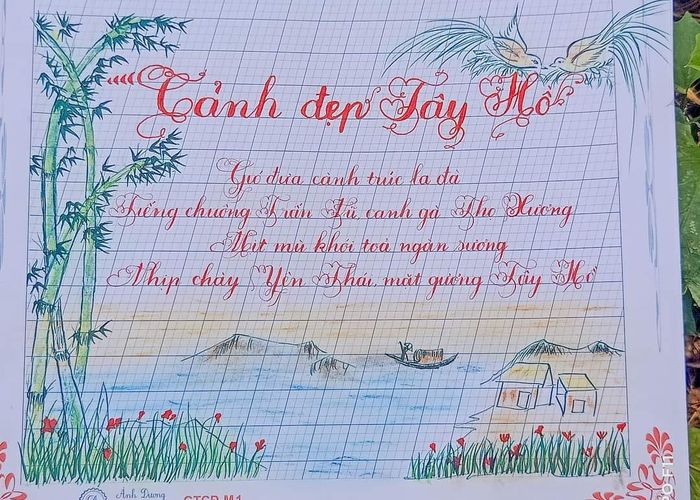 Cảnh đẹp Tây Hồ
Gió đưa cành trúc la đà
Tiếng chuông Trấn Vũ canh gà Thọ Xương
Mịt mù khói toả ngàn sương
Nhịp chày Yên Thái, mặt gương Tây Hồ
Ánh Dương